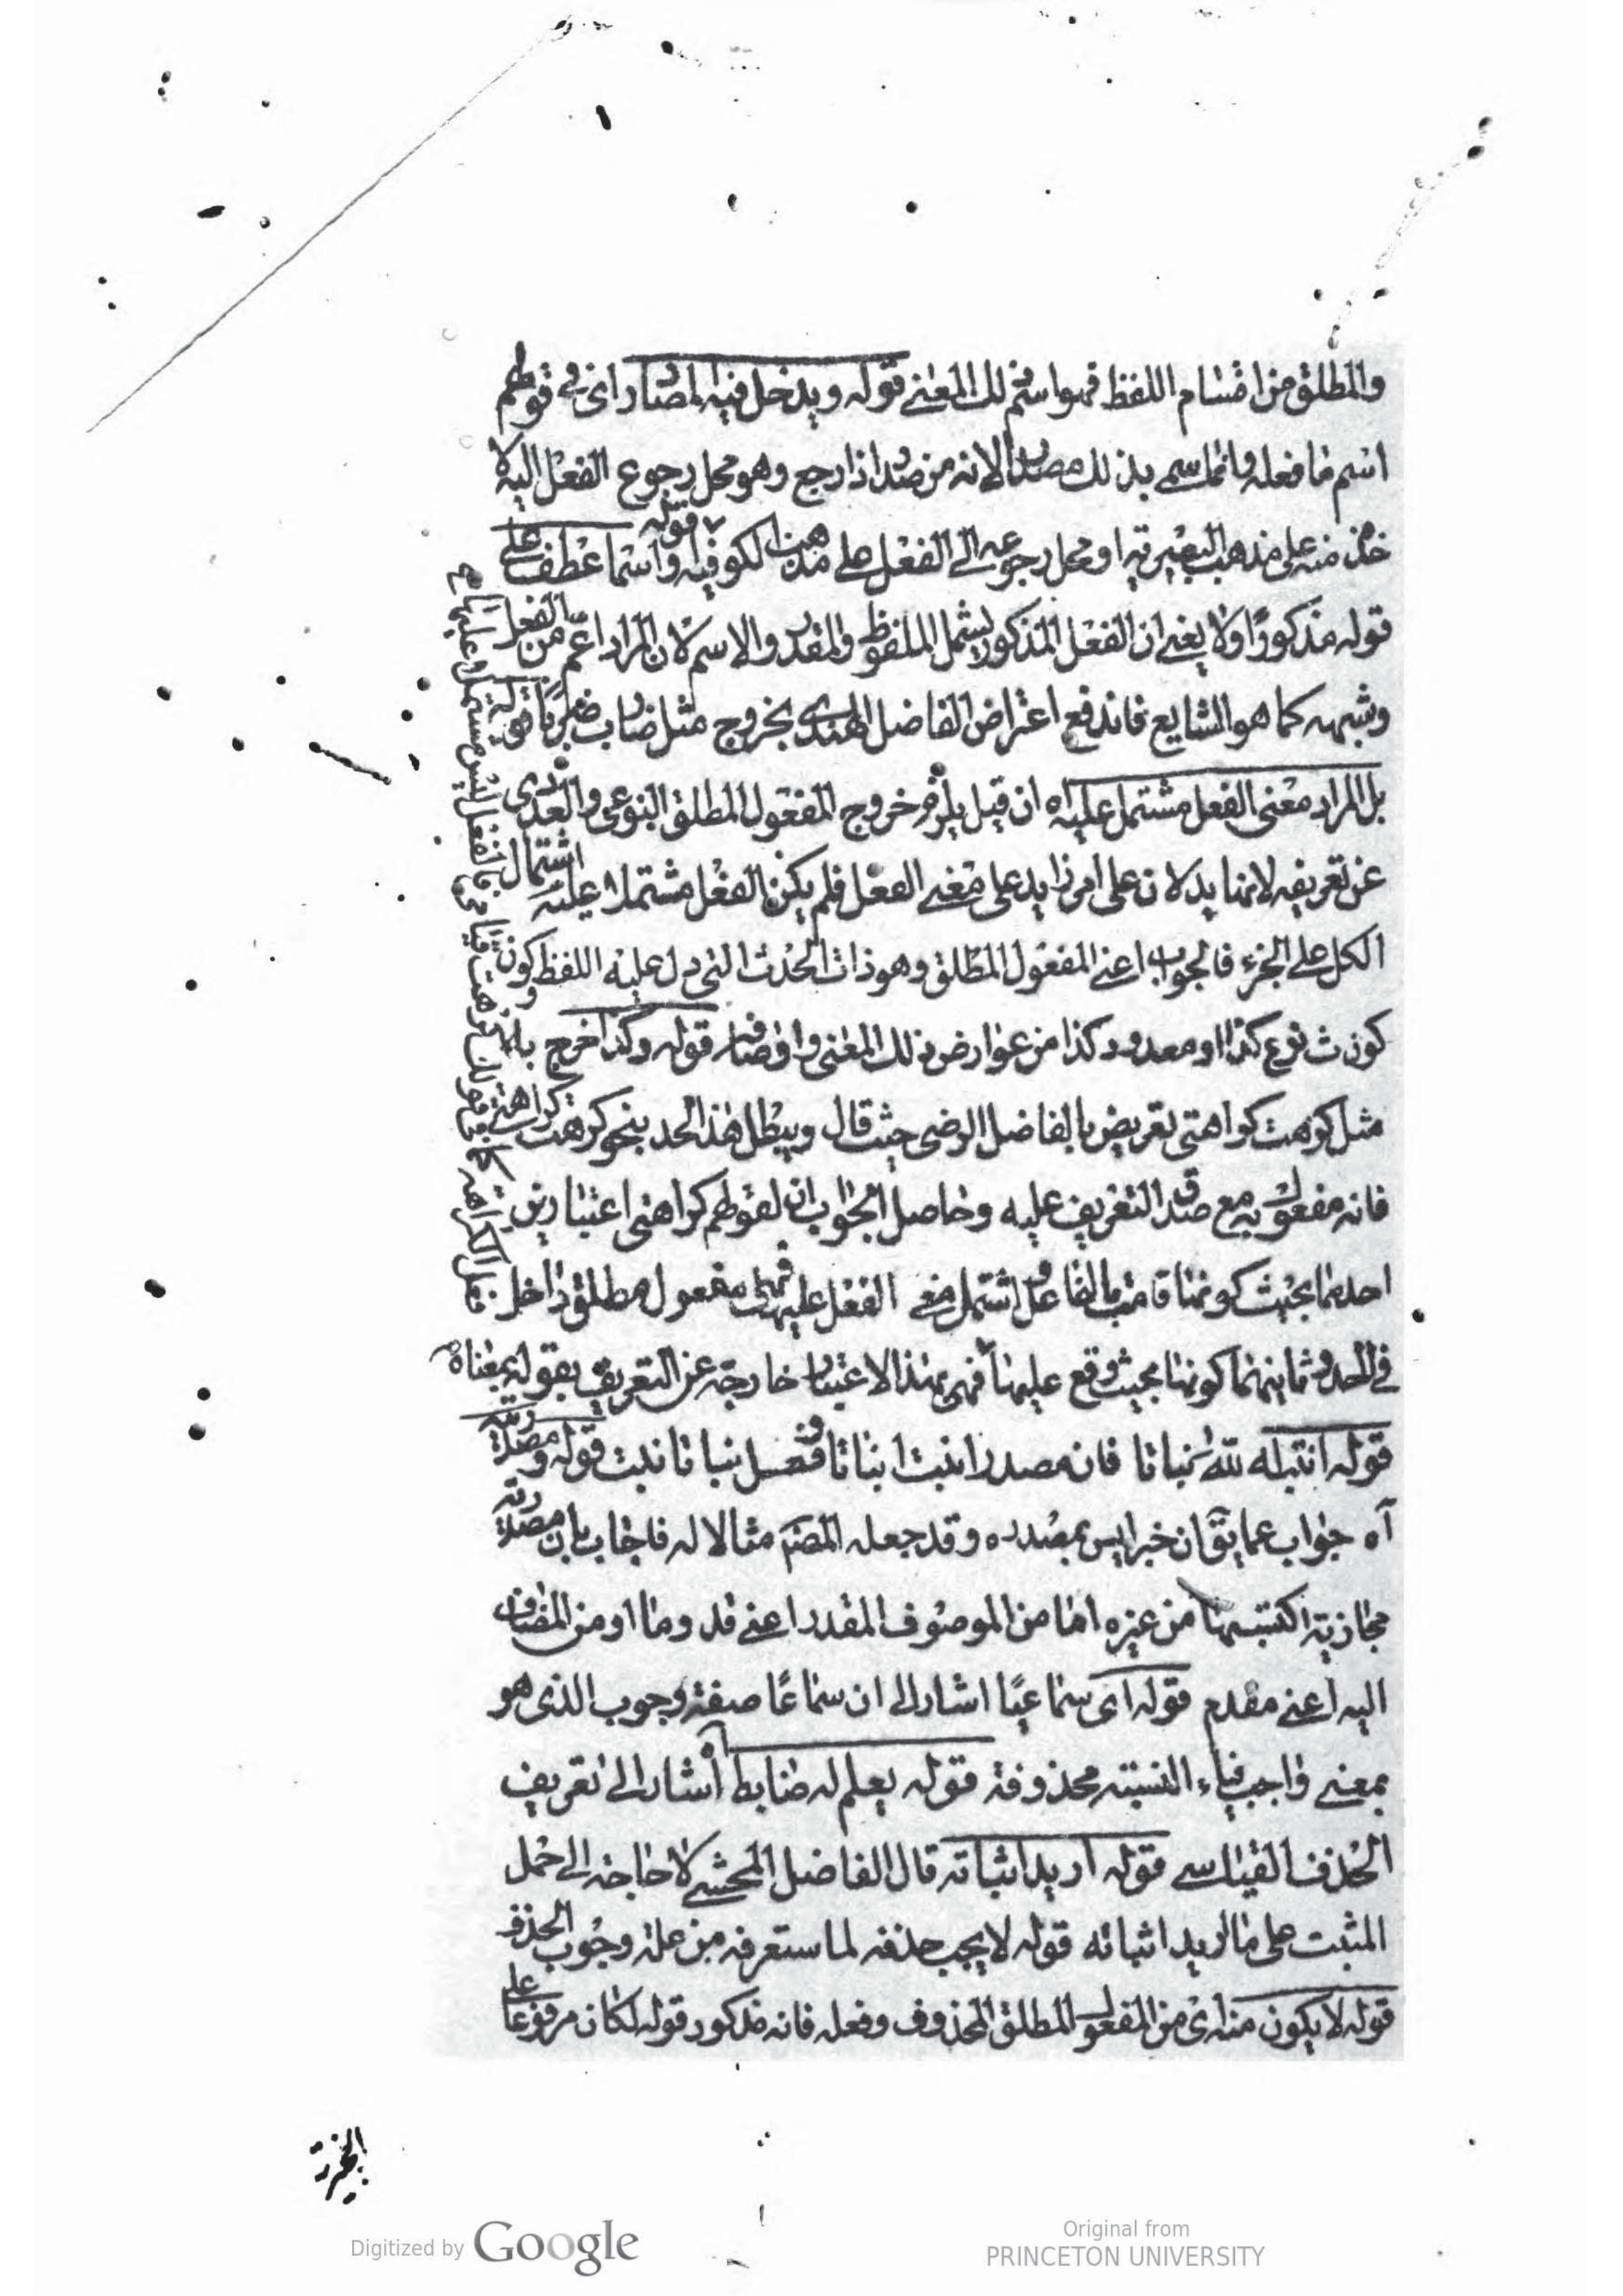 والمطلق من اقسام اللفظ فهو اسم لذلك المعنى قوله ويدخل فيه المصادر اى فى قولهم
اسم ما فعله وانما سمى بذلك مصدرا لانه من صدر اذا رجع وهو محل رجوع الفعل اليه لا
خذه منه على مذهب البصريه او محل رجوعه الى الفعل على مذهب الكوفيه قوله واسما عطف على
قوله مذكورا ولا يعنى ان الفعل المذكور يشمل الملفوظ والمقدر والاسم لان المراد اعم من الفعل
وشبهه كما هو الشايع فاندفع اعتراض الفاضل الهندى بخروج مثل ضارب ضربا قوله
بل المراد معنى الفعل مشتمل عليه اه ان قيل يلزم خروج المفعول المطلق النوعى والعددى
عن تعريفه لانهما يدلان على امر زايد على معنى الفعل فلم يكن الفعل مشتملا عليه اشتمال
الكل على الجزء فالجواب اعنى المفعول المطلق وهو ذات الحدث الذى دل عليه اللفظ وكون
كون ث نوع كذا او معدود كذا من عوارض ذلك المعنى واوصافه قوله وكذا خرج به
مثل كرهت كراهتى تعريض بالفاضل الرضى حيث قال ويبطل هذا الحد بنحو كرهت كراهتى
فانه مفعول به مع صدق التعريف عليه وحاصل الجواب ان لقولهم كراهتى اعتبارين
احدهما بحيث كونها قامت بالفاعل واشتمل معنى الفعل عليها فهى مفعول مطلق داخل
فى الحد وثانيهما كونها بحيث وقع عليها فهى بهذا الاعتبار خارجة عن التعريف بقوله بمعناه
قوله انبته الله نباتا فان مصدر انبت انباتا وفعل نباتا نبت قوله ومصدريته
آه جواب عما يق ان خبرا ليس بمصدر وقد جعله المصنف مثالا له فاجاب بان مصدريته
مجازية اكتسبها من غيره اما من الموصوف المقدر اعنى قدوما او من المضاف
اليه اعنى مقدم قوله اى سماعيا اشار الى ان سماعا صفة وجوب الذى هو
بمعنى واجب فياء النسبته محذوفة قوله يعلم له ضابط آه اشار الى تعريف
الحذف القياسى قوله اريد اثباته قال الفاضل المحشى لا حاجة الى حمل
المثبت على ما اريد اثباته قوله لا يجب حذفه لما ستعرفه من علة وجوب الحذف
قوله لا يكون منه اى من المفعول المطلق المحذوف وفعله فانه مذكور قوله لكان مرفوعا على
Digitized by Google
Original from
PRINCETON UNIVERSITY